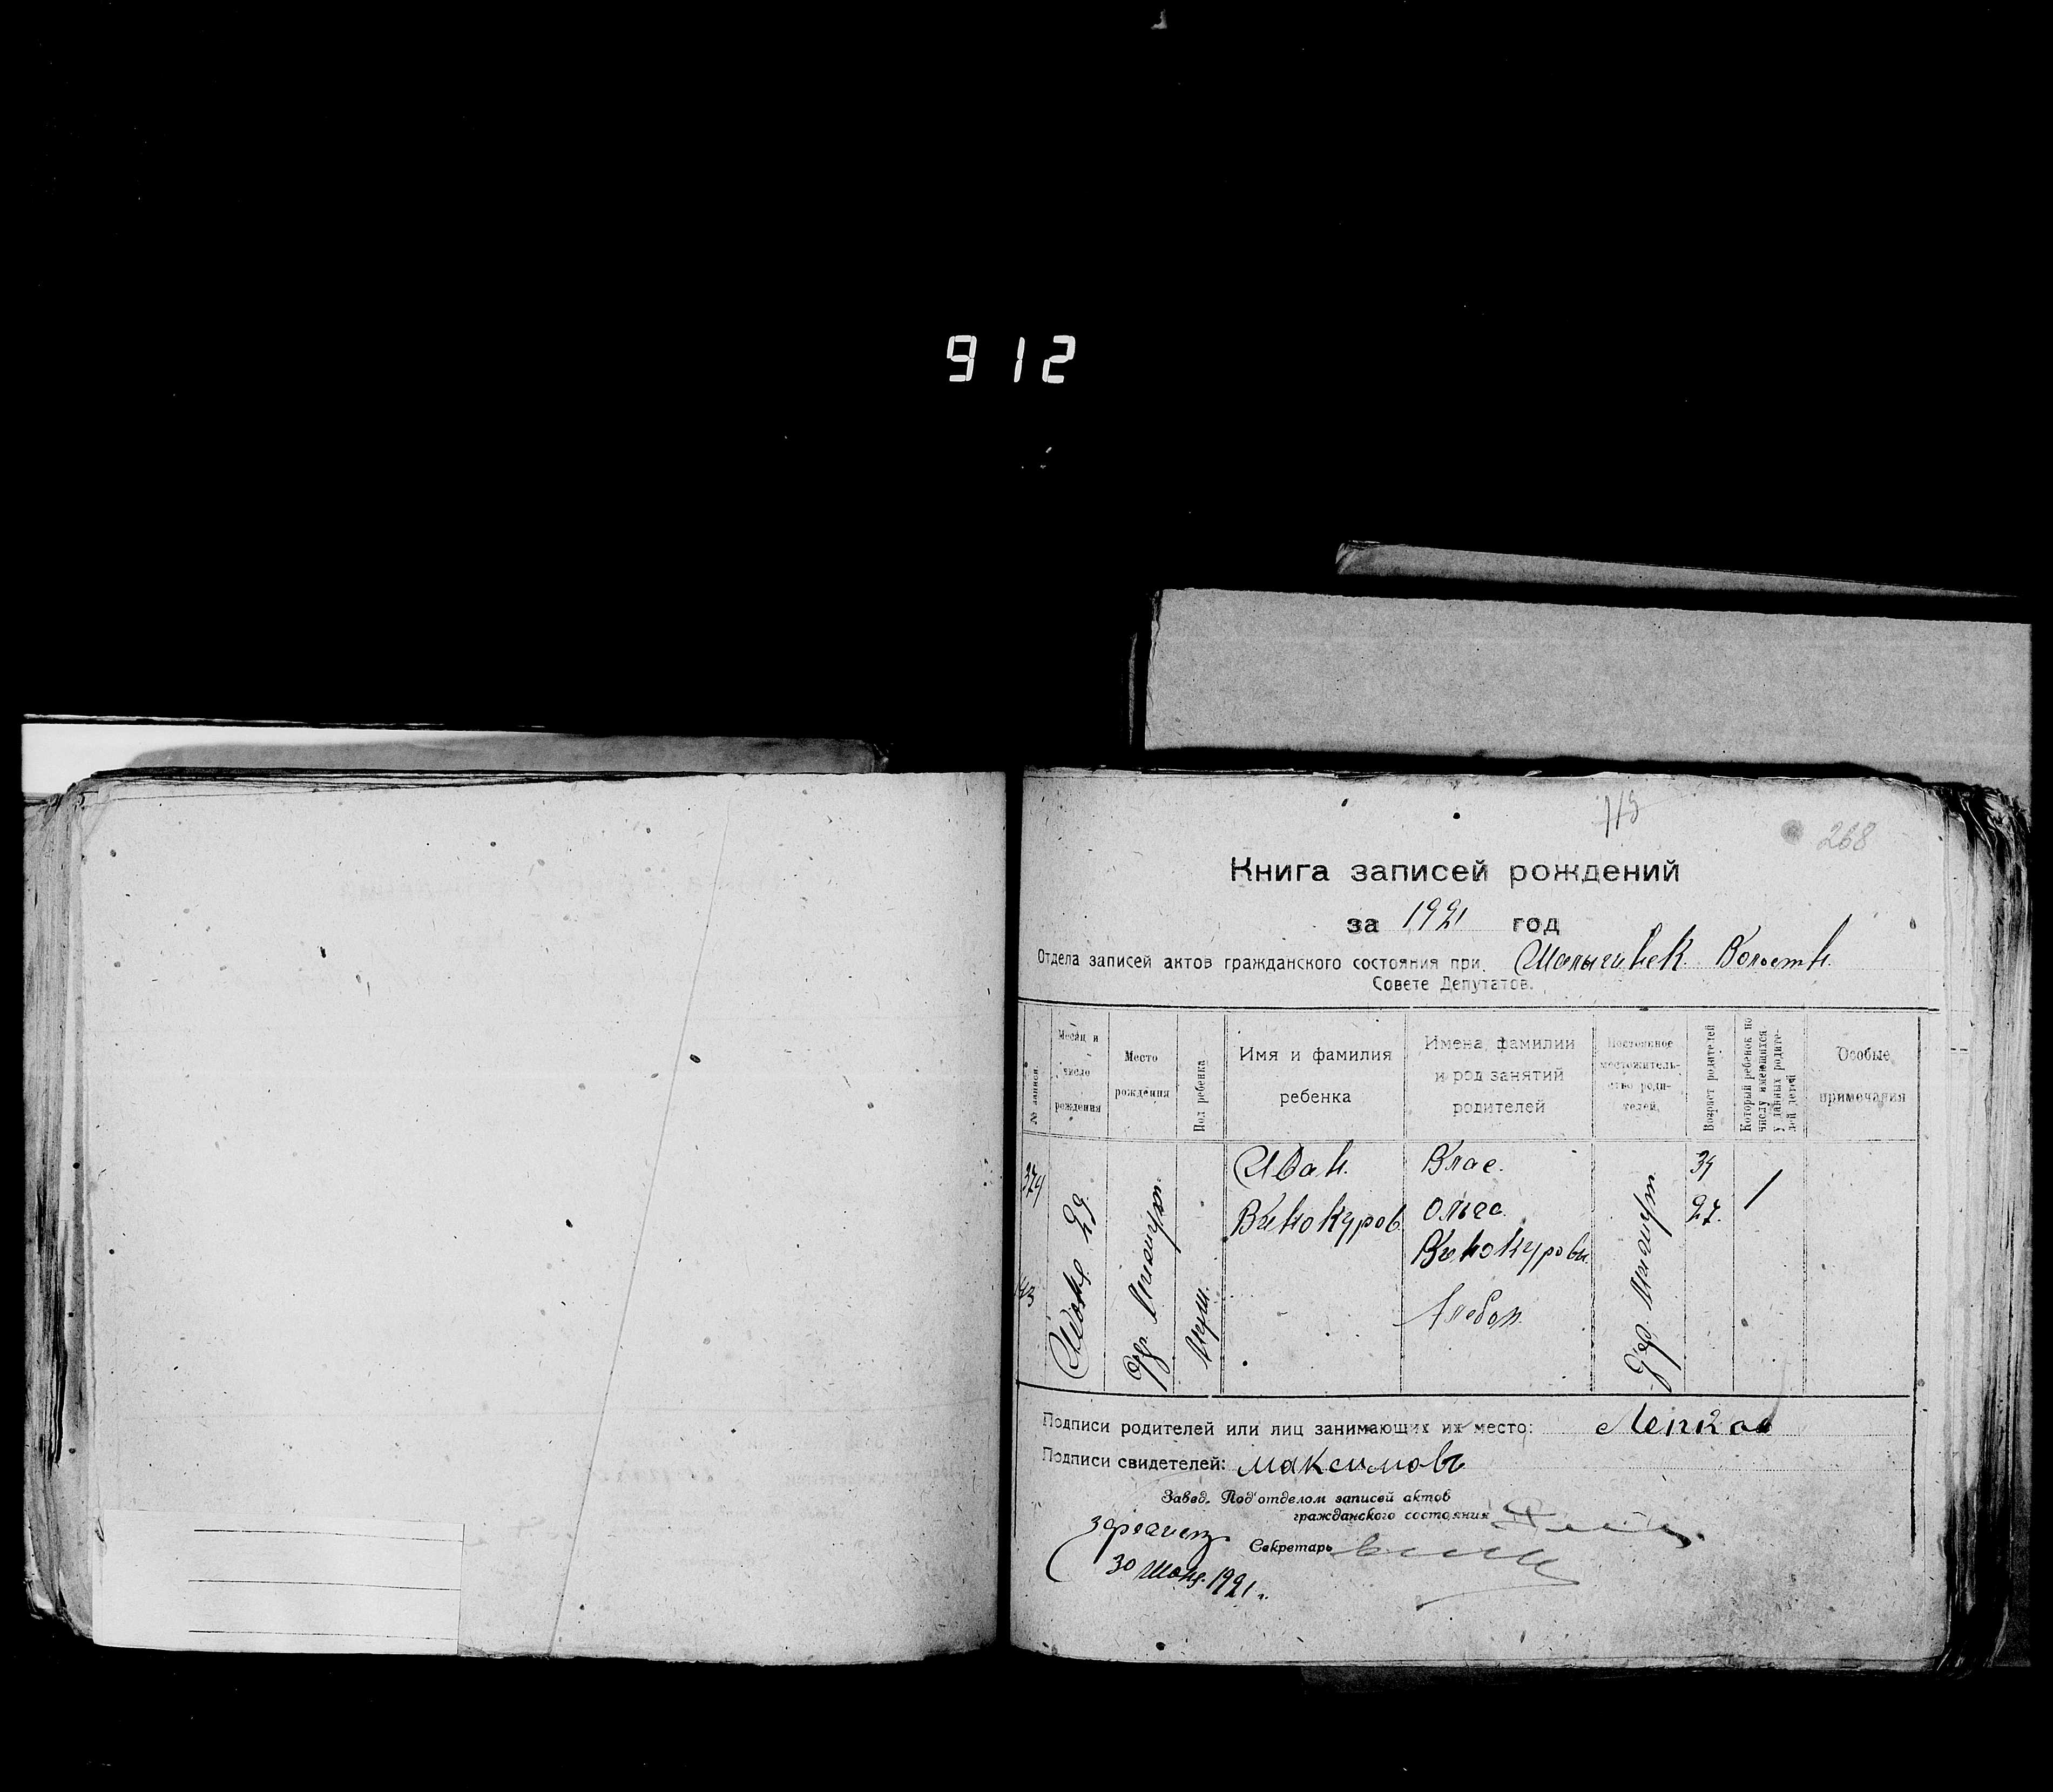 912
268
Книга записей рождений
за 1921 год
Отдела записей актов гражданского состояния при Волостн.
Совете Депутатов.
№ записи.
Месяц и число рождения
Место рождения
Пол ребенка
Имя и фамилия ребенка
Имена, фамилии и род занятий родителей
Постоянное местожительство родителей.
Возраст родителей
Который ребенок по числу имеющихся у данных родителей детей
Особые примечания
374
Июня 29
дер.
Муж.
Иван.
Винокуров
Влас.
Ольга.
Винокуровы
Хлебоп.
Дер.
34
27.
1
Подписи родителей или лиц занимающих их место:
Подписи свидетелей: Максимовъ
Завед. Под'отделом записей актов
гражданского состояния
Секретарь
30 Июня 1921 г.